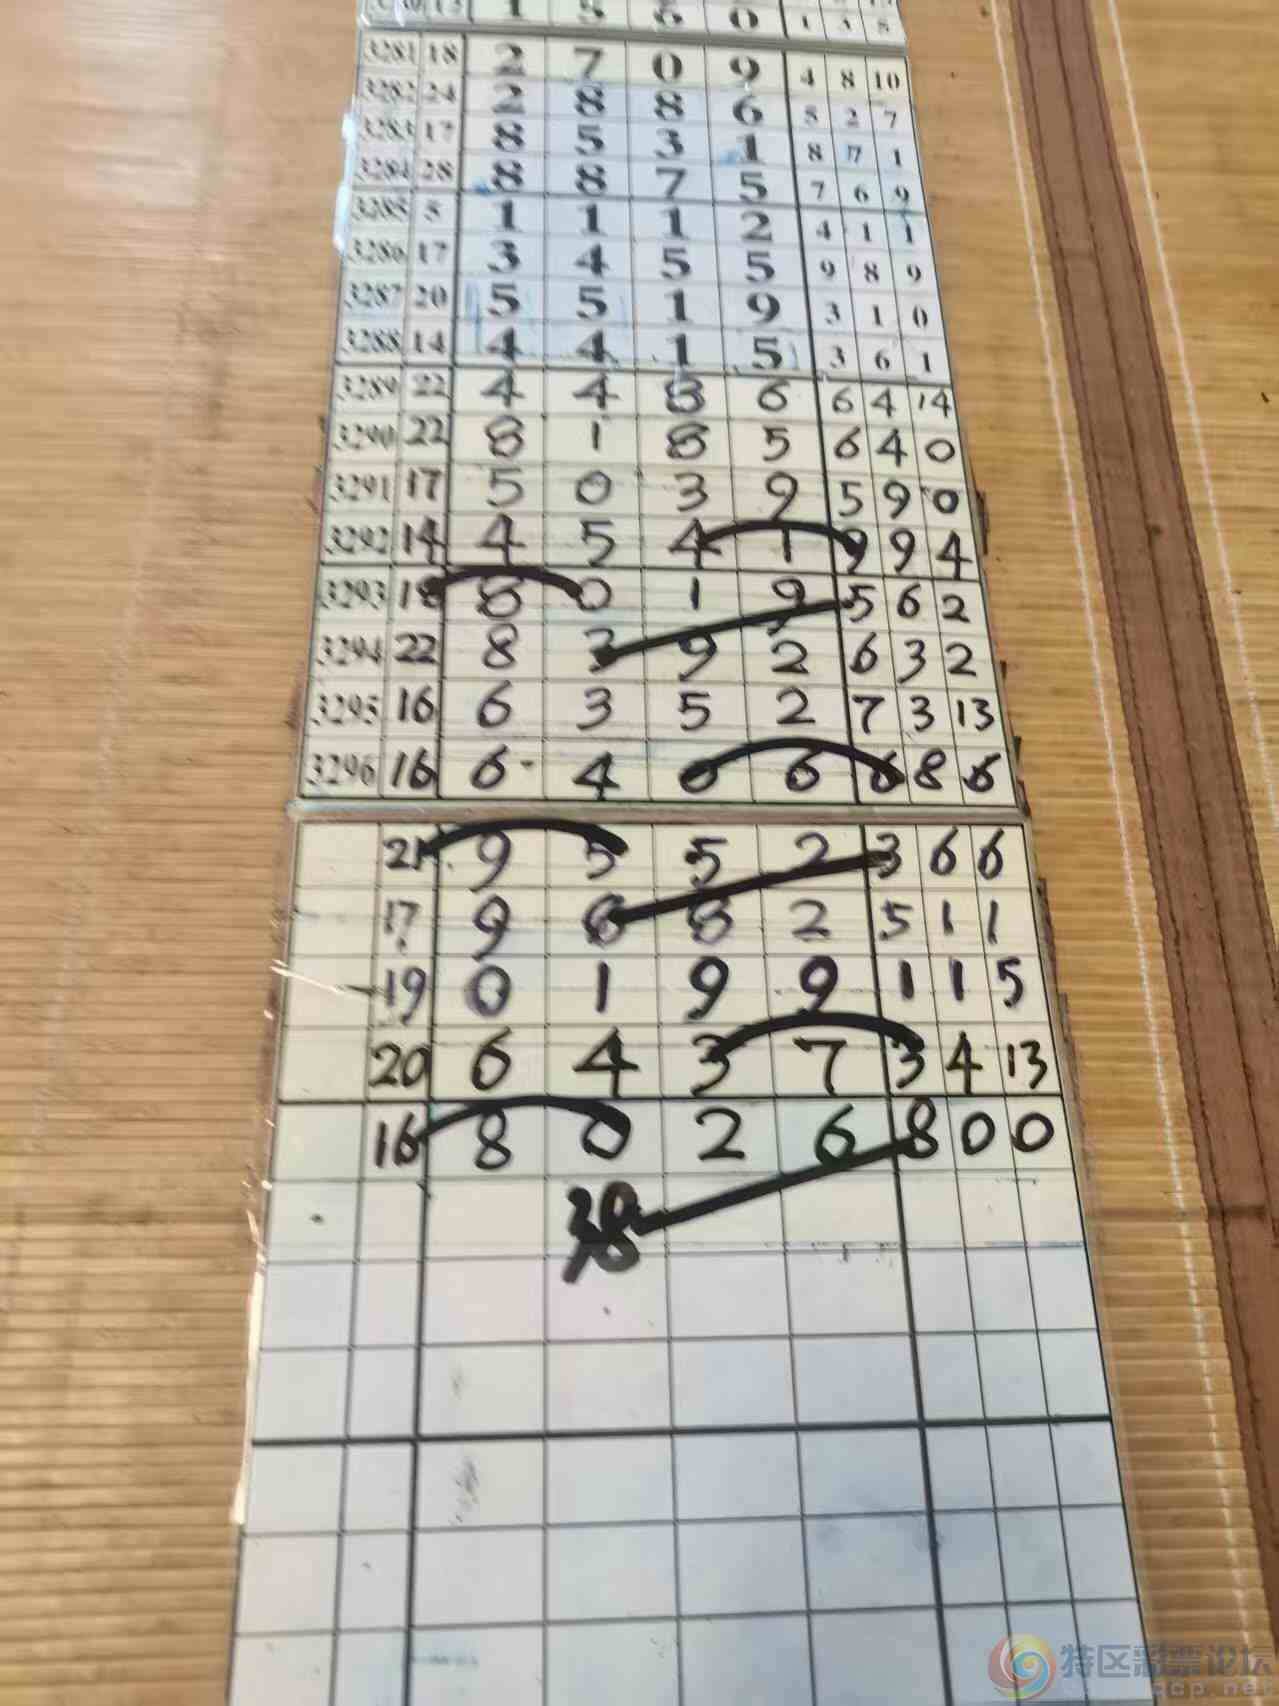 3281 18 2 7 0 9 4 8 10
3282 24 2 8 8 6 5 2 7
3283 17 8 5 3 1 8 7 1
3284 28 8 8 7 5 7 6 9
3285 5 1 1 1 2 4 1 1
3286 17 3 4 5 5 9 8 9
3287 20 5 5 1 9 3 1 0
3288 14 4 4 1 5 3 6 1
3289 22 4 4 8 6 6 4 14
3290 22 8 1 8 5 6 4 0
3291 17 5 0 3 9 5 9 0
3292 14 4 5 4 1 9 9 4
3293 18 8 0 1 9 5 6 2
3294 22 8 3 9 2 6 3 2
3295 16 6 3 5 2 7 3 13
3296 16 6 4 0 6 6 8 6
21 9 5 5 2 3 6 6
17 9 2 5 1 1
19 0 1 9 9 1 1 5
20 6 4 3 7 3 4 13
16 8 0 2 6 8 0 0
特区彩票论坛